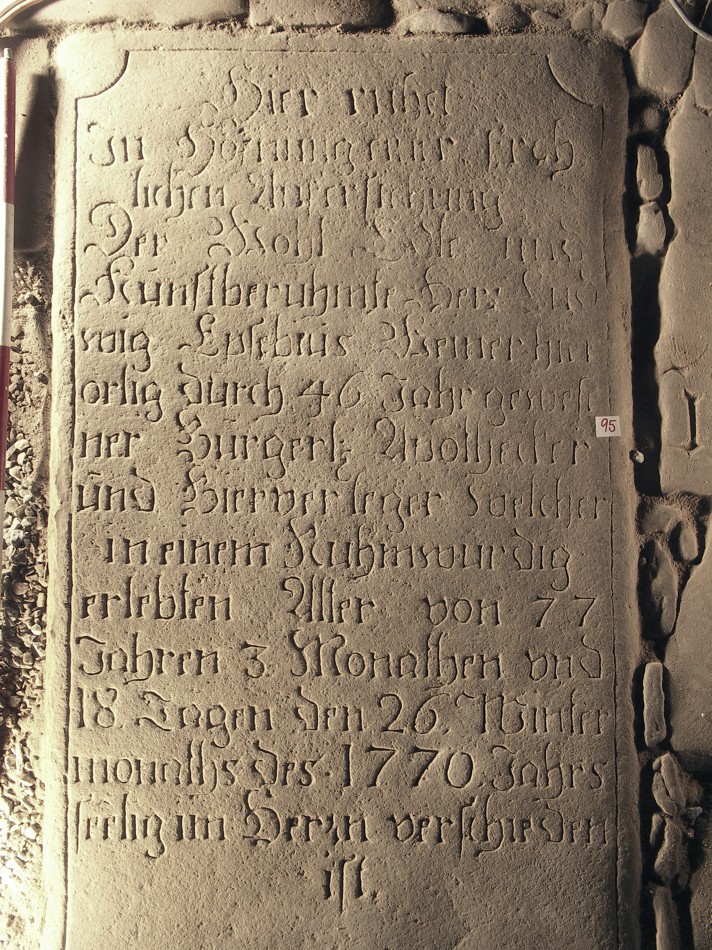 Hier ruhet
In Hoffnung einer fröh
lichen Auferstehung
Der Wohl Edle und
Kunstberuhmte Herr Lud
wig Epsebius hier
örtig dürch 46 Jahr gewese
ner Bürgers, Apothecker
ünd Bierverleger welcher
in einem Ruhmwürdig
erlebten Alter von 77
Jahren 3. Monathen vnd
18. Tagen den 26. Winter
monaths des 1770. Jahrs
seelig im Herrn verschieden
ist.
95